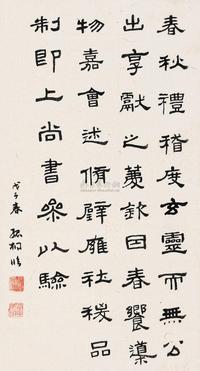 春秋禮稽度玄靈而無公
出享獻之薦欽因春饗導
物嘉會述脩辟雍社稷品
制即上尚書參以驗
戊子春